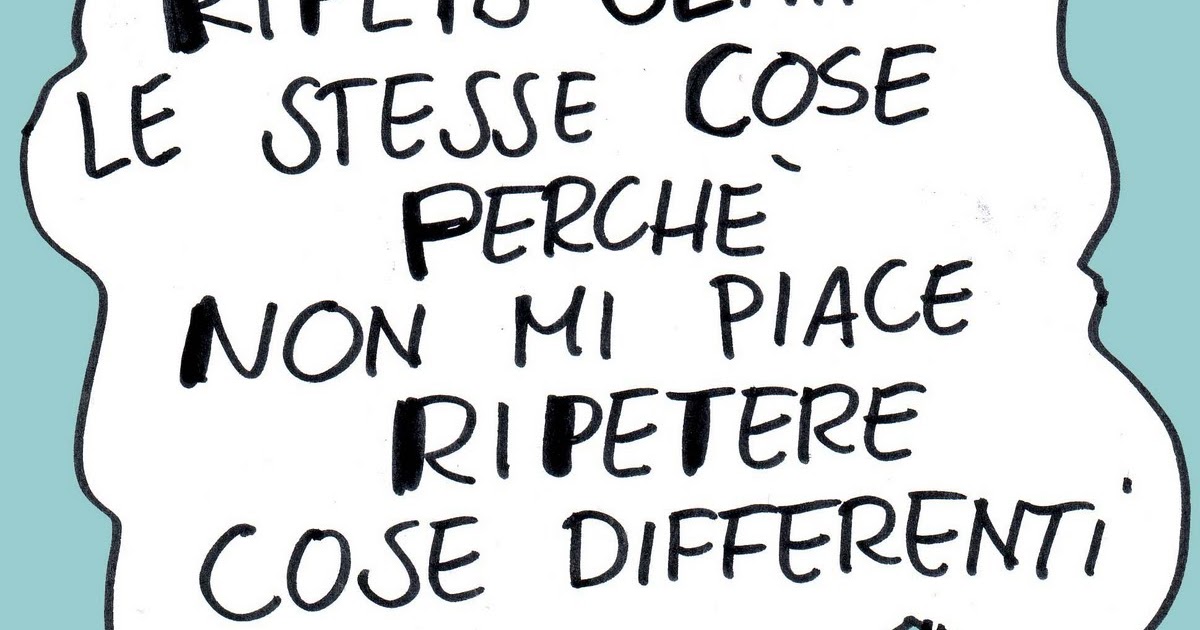 RIPETO
LE STESSE COSE
PERCHÈ
NON MI PIACE
RIPETERE
COSE DIFFERENTI